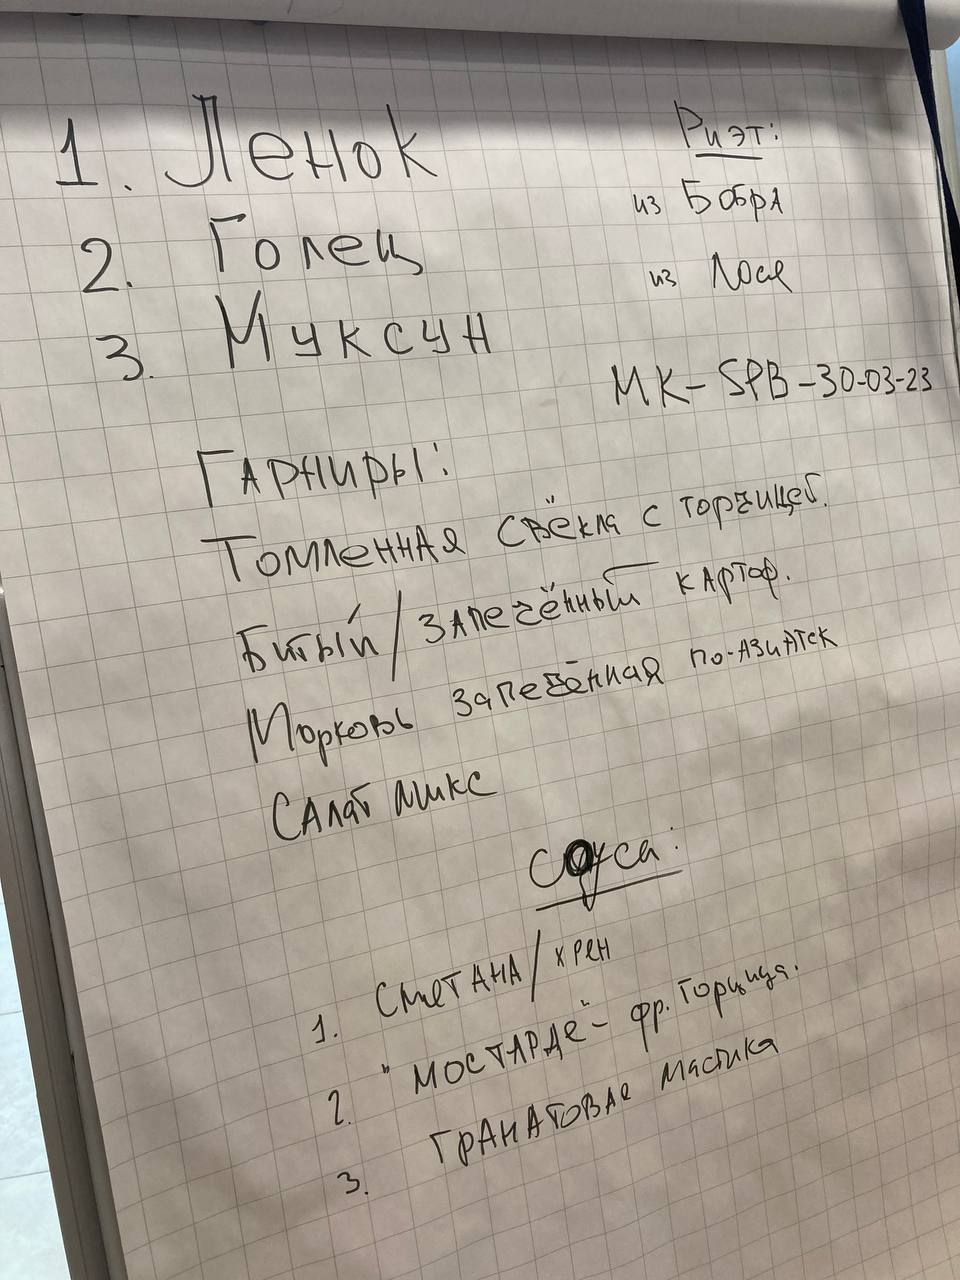 1. Ленок
2. Голец
3. Муксун
Риэт:
из Бобра
из Лося
МК-SPB-30-03-23
Гарниры:
Томленная свёкла с горчицей.
Битый/запечённый картоф.
Морковь запечённая по-азиатск
Салат микс
Соуса:
1. Сметана/хрен
2. "Мостарде" - фр. горчица.
3. Гранатовая мастика